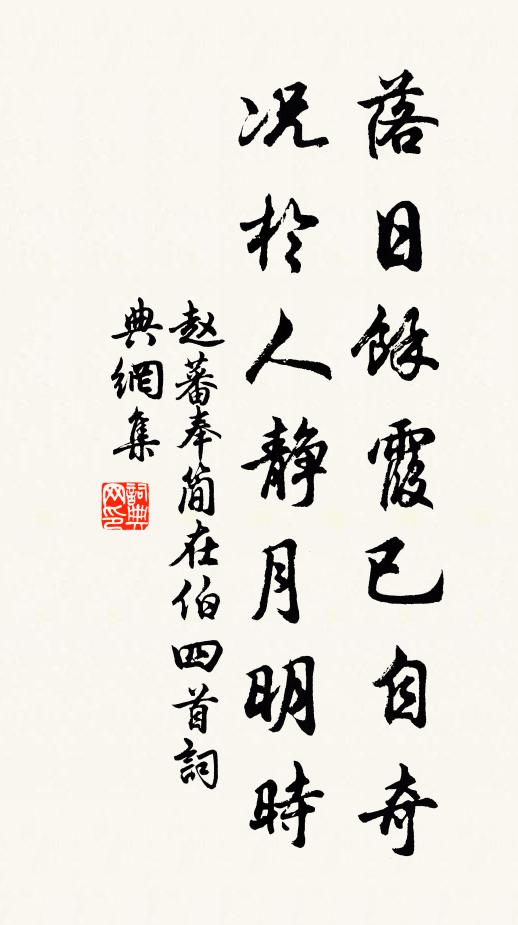 落日餘霞已自奇
况於人静月明時
赵蕃奉简在伯四首詞
典網集
詞典
网印